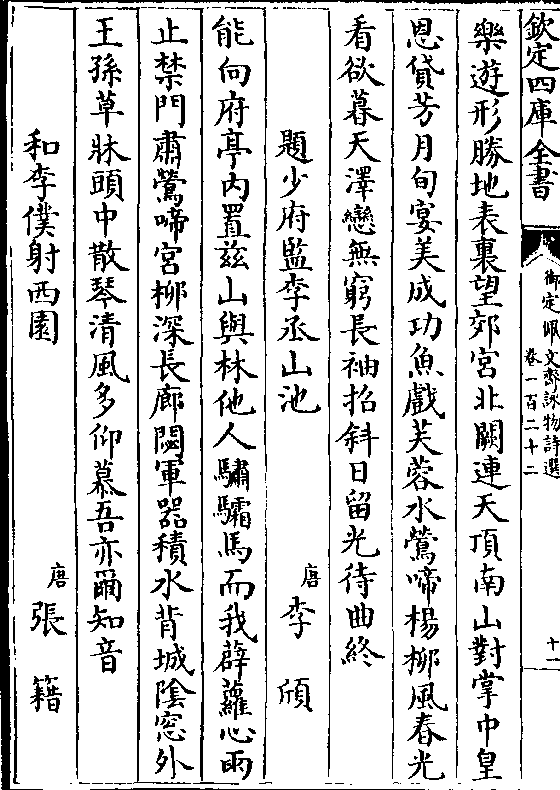 欽定四庫全書
御定佩文齋詠物詩選
卷一百二十二
十一
樂遊形勝地表裏望郊宮北闕連天頂南山對掌中皇
恩貸芳月旬宴美成功魚戲芙蓉水鶯啼楊柳風春光
看欲暮天澤戀無窮長袖招斜日留光待曲終
題少府監李丞山池
唐李頎
能向府亭內置兹山與林他人驌驦馬而我薜蘿心雨
止禁門肅鶯啼宮柳深長廊閟軍器積水背城陰窓外
王孫草牀頭中散琴清風多仰慕吾亦爾知音
和李僕射西園
唐張籍